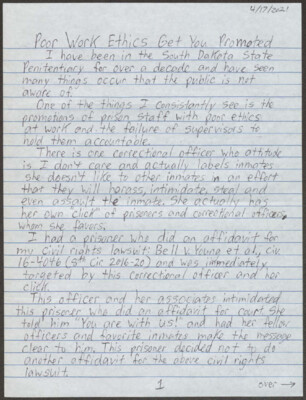 4/17/2021
Poor Work Ethics Get You Promoted
I have been in the South Dakota State
Penitentiary for over a decade and have seen
many things occur that the public is not
aware of.
One of the things I consistantly see is the
promotions of prison staff with poor ethics
at work and the failure of supervisors to
hold them accountable.
There is one correctional officer who attitude
is I don't care and actually labels inmates
she doesn't like to other inmates in an effort
that they will harass, intimidate, steal and
even assault the inmate. She actually has
her own click of prisoners and correctional officers
whom she favors.
I had a prisoner who did an affidavit for
my Civil rights lawsuit: Bell v. Young et al., Civ.
16-4046 (8th Cir. 2016-20) and was immediately
targeted by this correctional officer and her
click.
This officer and her associates intimidated
this prisoner who did an affidavit for court. She
told him "You are with us! and had her fellow
officers and favorite inmates make the message
clear to him. This prisoner decided not to do
another affidavit for the above civil rights
lawsuit.
1
over →